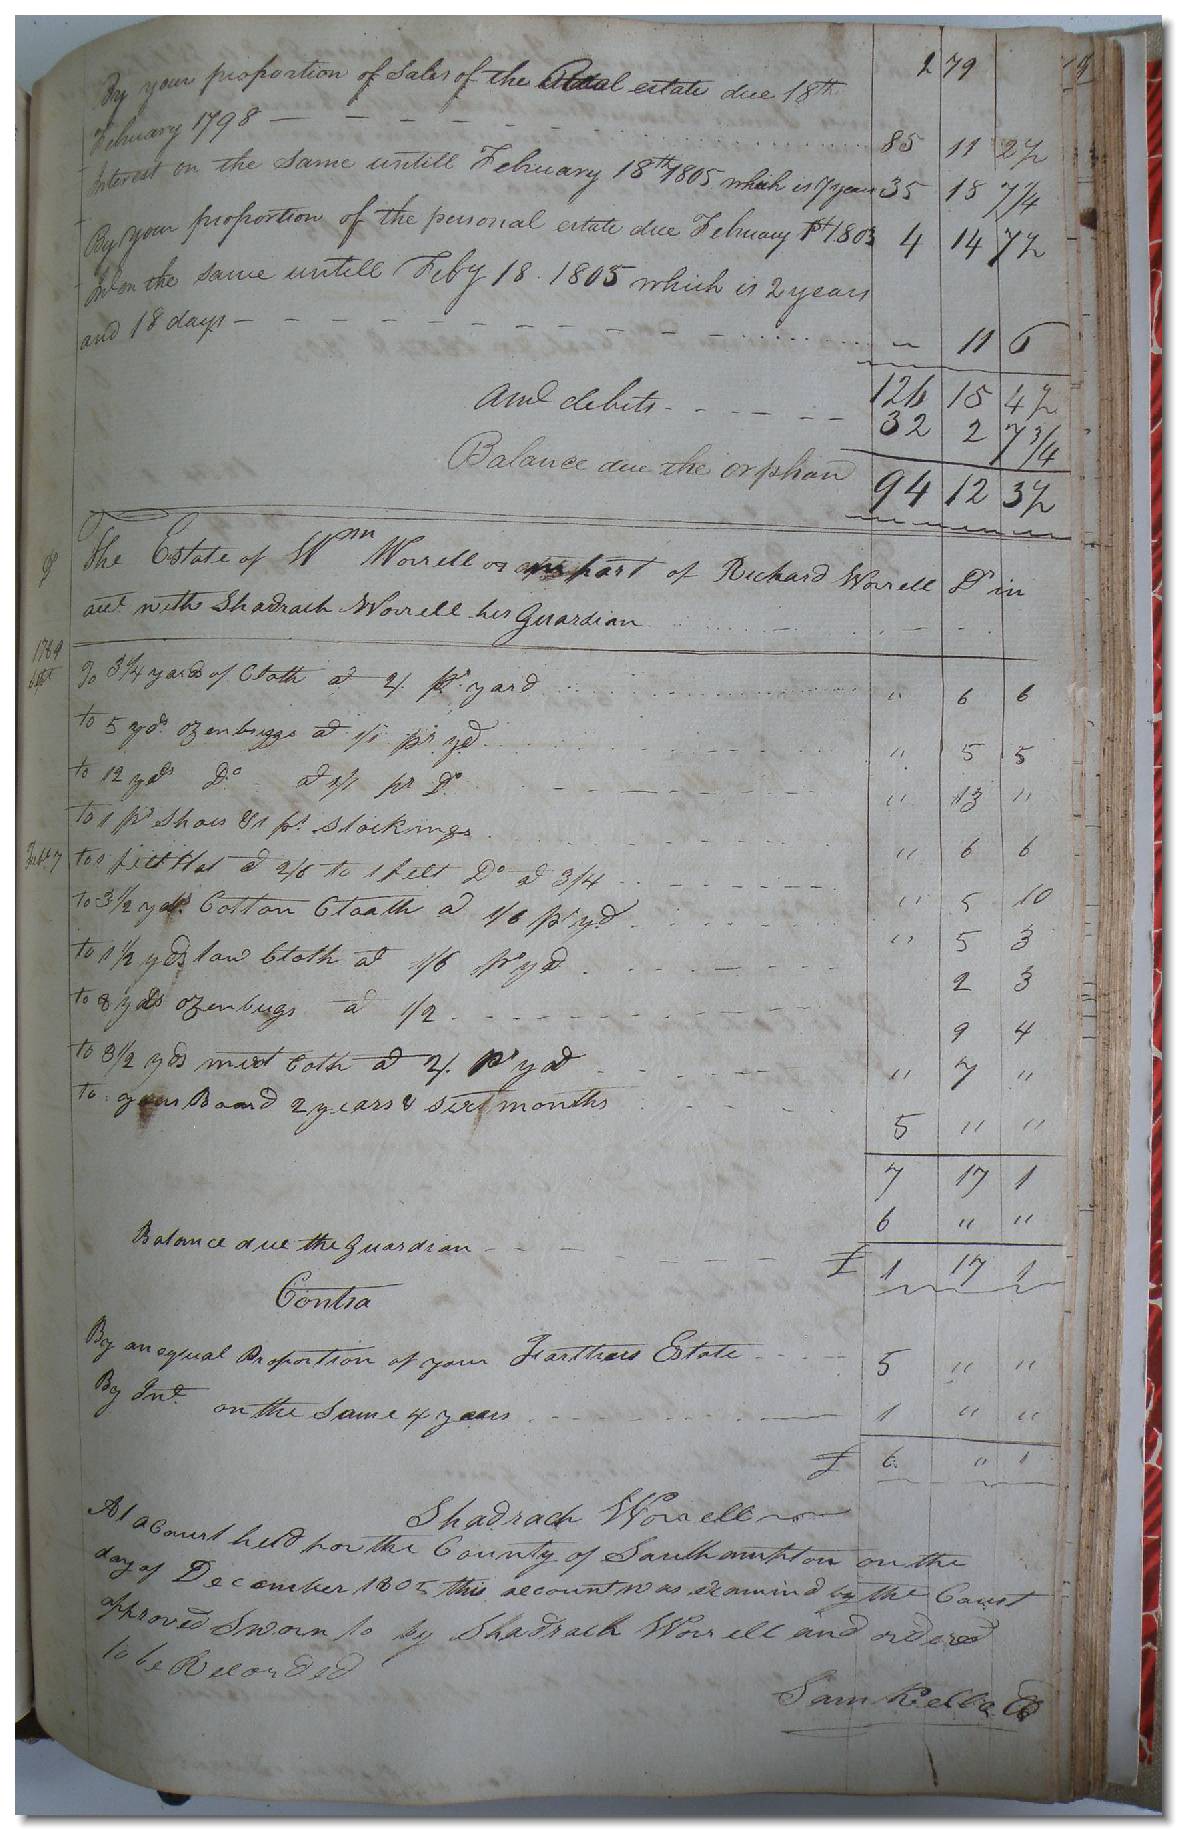 279
By your proportion of Sales of the Real estate due 18th
February 1798 85 11 2½
Interest on the same untill February 18th 1805 which is 7 years 35 18 7¼
By your proportion of the personal estate due February 1st 1803 4 14 7½
Int on the same untill Feby 18. 1805 which is 2 years
and 18 days 〃 11 6
126 15 4½
Amt debits 32 2 7¾
Balance due the orphan 94 12 3½
The Estate of Wm Worrell or part of Richard Worrell Dr in
act with Shadrach Worrell his Guardian
1789
To 3¼ yards of Cloth at 2/. pr yard 〃 6 6
to 5 yds ozenbriggs at 1/1 pr yd 〃 5 5
to 12 yds Do at 1/1 pr Do 〃 13 〃
to 1 pr Shoes & 1 pr Stockings 〃 6 6
to 1 felt Hat at 2/6 to 1 felt Do at 3/4 〃 5 10
to 3½ yds Cotton Cloath at 1/6 pr yd 〃 5 3
to 1½ yds tow Cloth at 1/6 pr yd 2 3
to 8 yds ozenbugs at 1/2 9 4
to 3½ yds mixt Coth at 2/. pr yd 〃 7 〃
to your Board 2 years & six months 5 〃 〃
7 17 1
6 〃 〃
Balance due the Guardian £ 1 17 1
Contra
By an equal Proportion of your Farthers Estate 5 〃 〃
By Int on the Same 4 years 1 〃 〃
£ 6 〃 〃
Shadrach Worrell
At a Court held for the County of Southampton on the
day of December 1805 this account was examind by the Court
approved Sworn to by Shadrach Worrell and ordered
to be Recorded
Sam Kello Ck